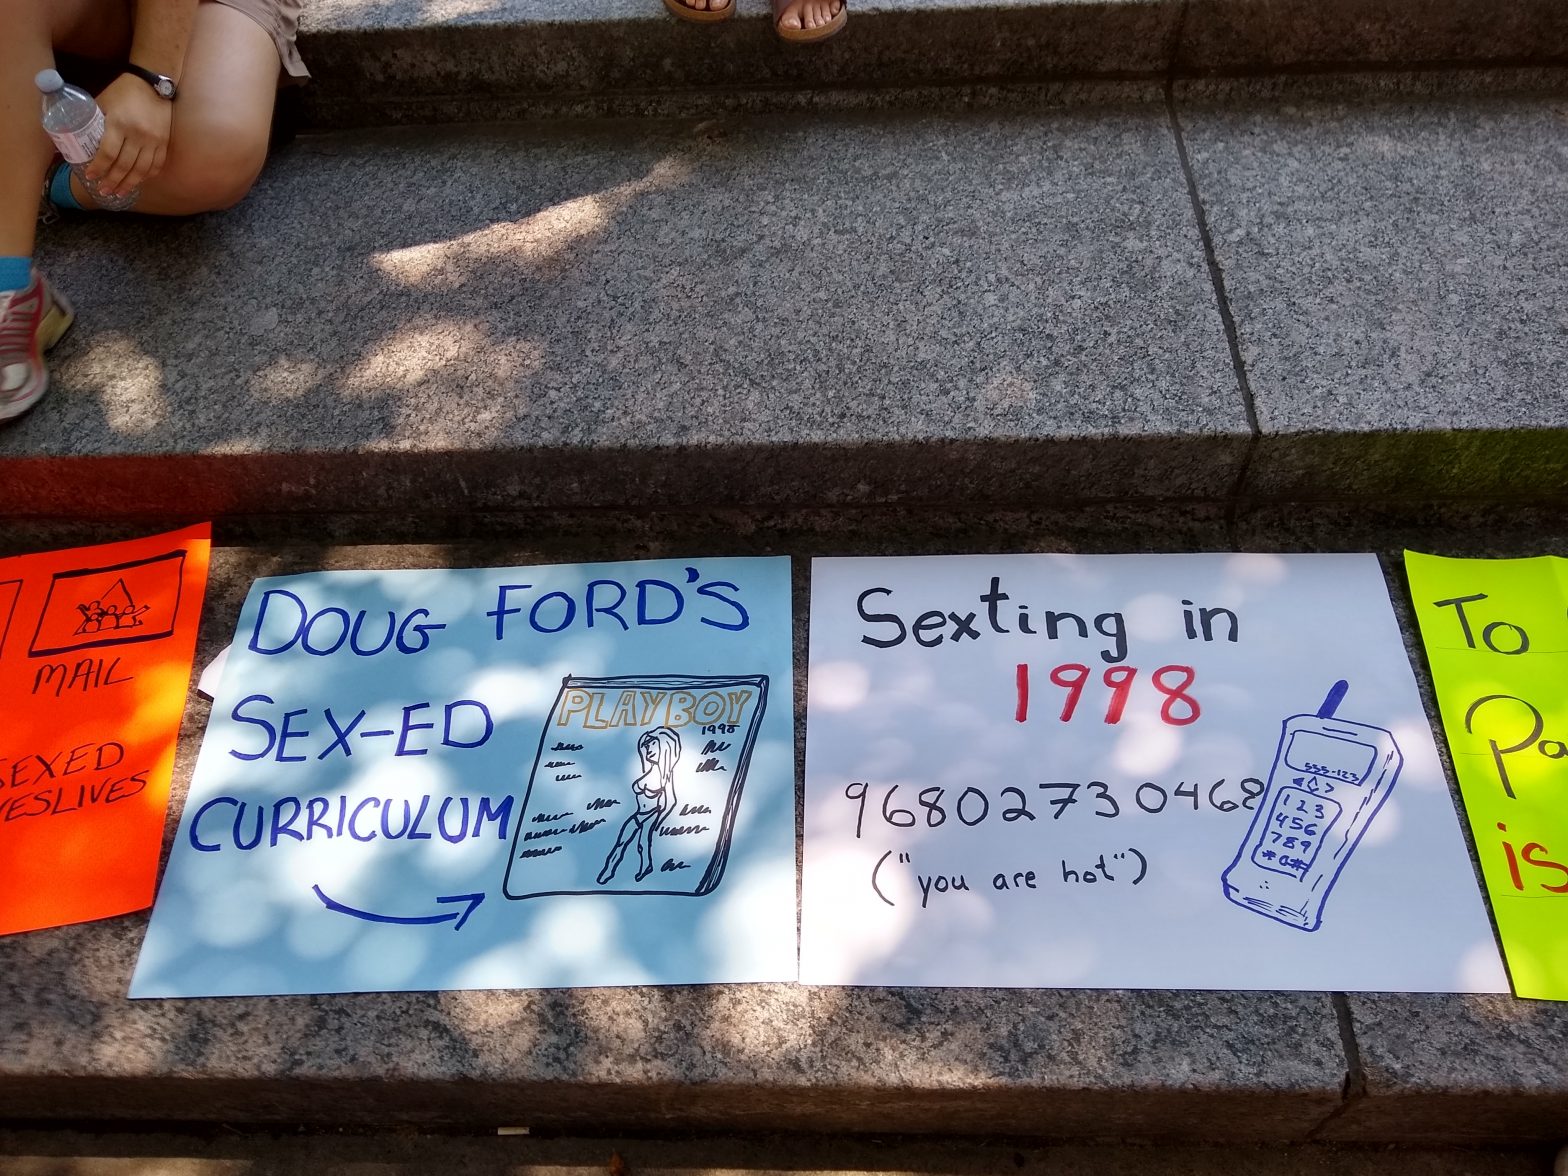 MAIL
SEXED
LIVES
DOUG FORD'S
SEX-ED
CURRICULUM
PLAYBOY
1998
Sexting in
1998
9680273 0468
("you are hot")
555-123
123
456
789
*0#
To
Pa
is